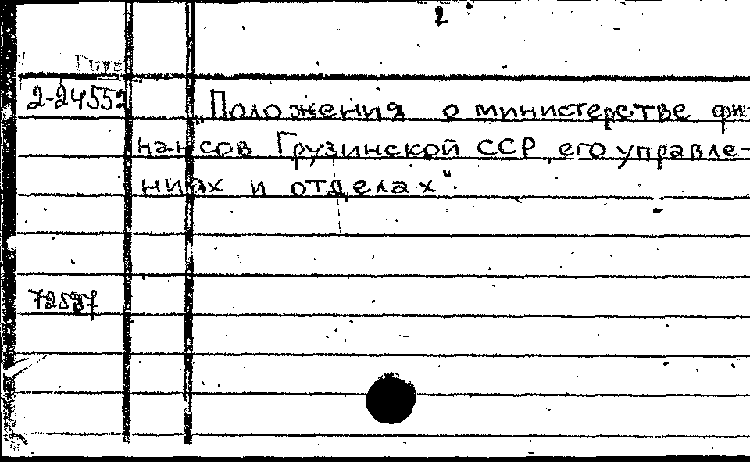 2
2-24552 „Положения о министерстве фи-
нансов Грузинской ССР, его управле-
ниях и отделах“.